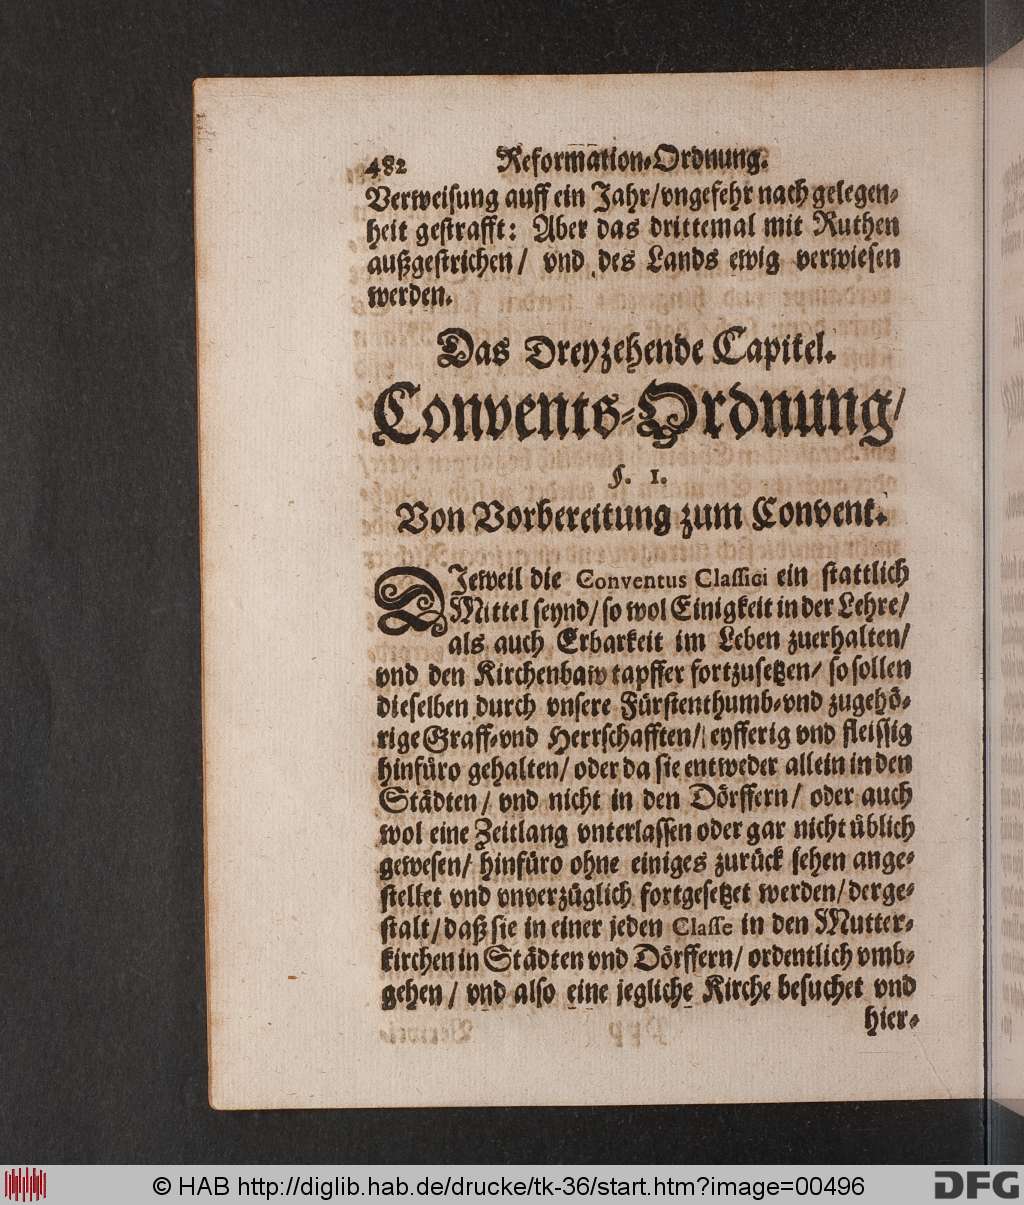 482 Reformation-Ordnung.
Verweisung auff ein Jahr/vngefehr nach gelegen-
heit gestrafft: Aber das drittemal mit Ruthen
außgestrichen/ vnd des Lands ewig verwiesen
werden.
Das Dreyzehende Capitel.
Convents-Ordnung/
§. 1.
Von Vorbereitung zum Convent.
DIeweil die Conventus Classici ein stattlich
Mittel seynd/ so wol Einigkeit in der Lehre/
als auch Erbarkeit im Leben zuerhalten/
vnd den Kirchenbaw tapffer fortzusetzen/ so sollen
dieselben durch vnsere Fürstenthumb-vnd zugehö-
rige Graff-vnd Herrschafften/ eyfferig vnd fleissig
hinfüro gehalten/ oder da sie entweder allein in den
Städten/ vnd nicht in den Dörffern/ oder auch
wol eine Zeitlang vnterlassen oder gar nicht üblich
gewesen/ hinfüro ohne einiges zurück sehen ange-
stellet vnd vnverzüglich fortgesetzet werden/ derge-
stalt/ daß sie in einer jeden Classe in den Mutter-
kirchen in Städten vnd Dörffern/ ordentlich vmb-
gehen/ vnd also eine jegliche Kirche besuchet vnd
hier-
© HAB http://diglib.hab.de/drucke/tk-36/start.htm?image=00496
DFG